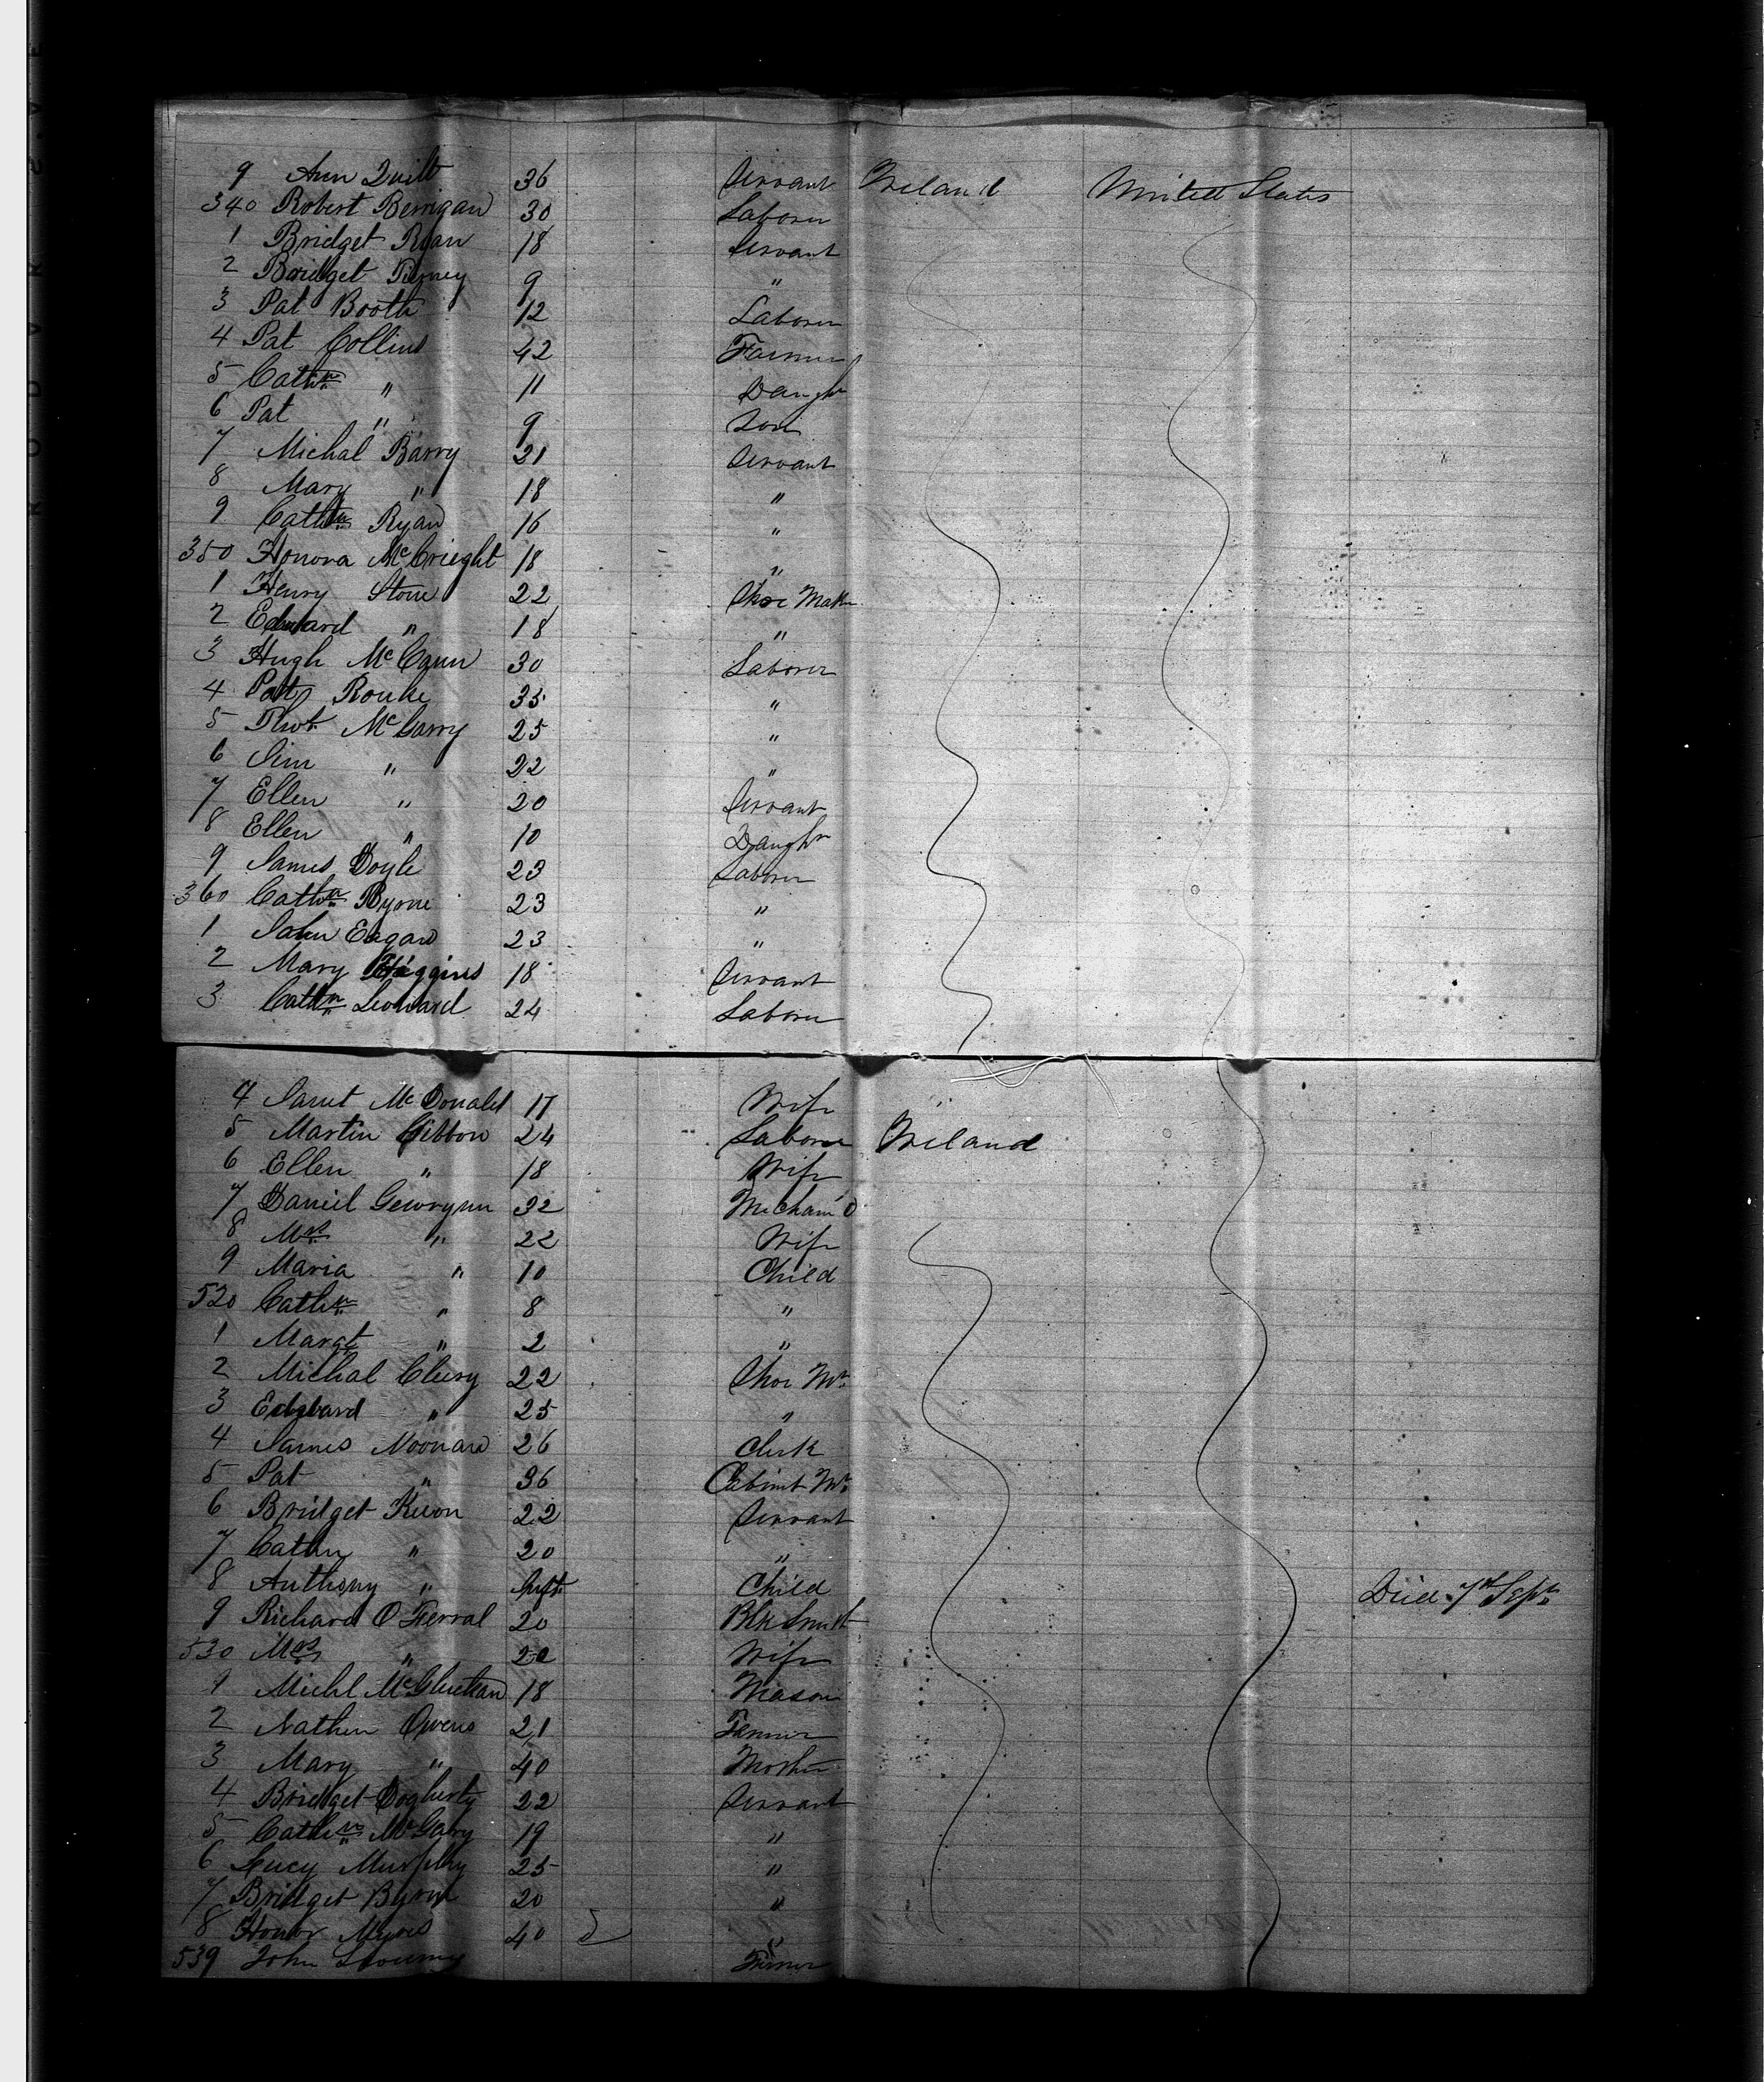 9 Ann Quilt 36 Servant Ireland United States
340 Robert Berrigan 30 Laborer
1 Bridget Ryan 18 Servant
2 Bridget Tierney 9 "
3 Pat Booth 12 Laborer
4 Pat Collins 42 Farmer
5 Cathn " 11 Daughr
6 Pat " 9 Son
7 Michal Barry 21 Servant
8 Mary " 18 "
9 Cathn Ryan 16 "
350 Honora McCrieght 18 "
1 Henry Stone 22 Shoe Maker
2 Edward " 18 "
3 Hugh McCann 30 Laborer
4 Pat Rourke 35 "
5 Thos McGarry 25 "
6 Jim " 22 "
7 Ellen " 20 Servant
8 Ellen " 10 Daughr
9 James Doyle 23 Laborer
360 Catha Byrne 23 "
1 John Eagan 23 "
2 Mary Higgins 18 Servant
3 Cathn Leonard 24 Laborer
4 Janet McDonald 17 Wife
5 Martin Gibbon 24 Laborer Ireland
6 Ellen " 18 Wife
7 Daniel 32
8 Mrs " 22 Wife
9 Maria " 10 Child
520 Cathn " 8 "
1 Margt " 2 "
2 Michal Clury 22 Shoe Mr
3 Edward " 25 "
4 James Noonan 26 Clerk
5 Pat " 36 Cabinet Mr
6 Bridget Keeon 22 Servant
7 Cathn " 20 "
8 Anthony " Inft Child Died 7th Sept
9 Richard O Ferral 20 Blk Smith
530 Mrs " 20 Wife
1 Michl 18 Mason
2 Nathen Owens 21 Farmer
3 Mary " 40 Mother
4 Bridget Dogherty 22 Servant
5 Cathn McGary 19 "
6 Lucy Murphy 25 "
7 Bridget Byrne 20 "
8 Honor Myers 40 "
539 John Farmer